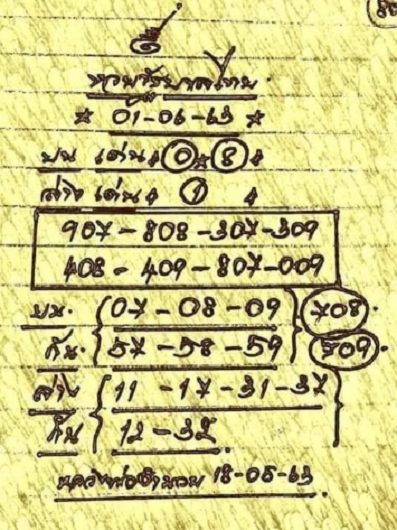 หวยรัฐบาลไทย
☆ 01-06-63 ☆
บน เด่น 0 8
ล่าง เด่น 1
907 - 808 - 307 - 309
408 - 409 - 807 - 009
บน. { 07 - 08 - 09 } 708
กัน. { 57 - 58 - 59 } 509.
ล่าง { 11 - 17 - 31 - 37 }
กัน { 12 - 32 . }
18-05-63 .